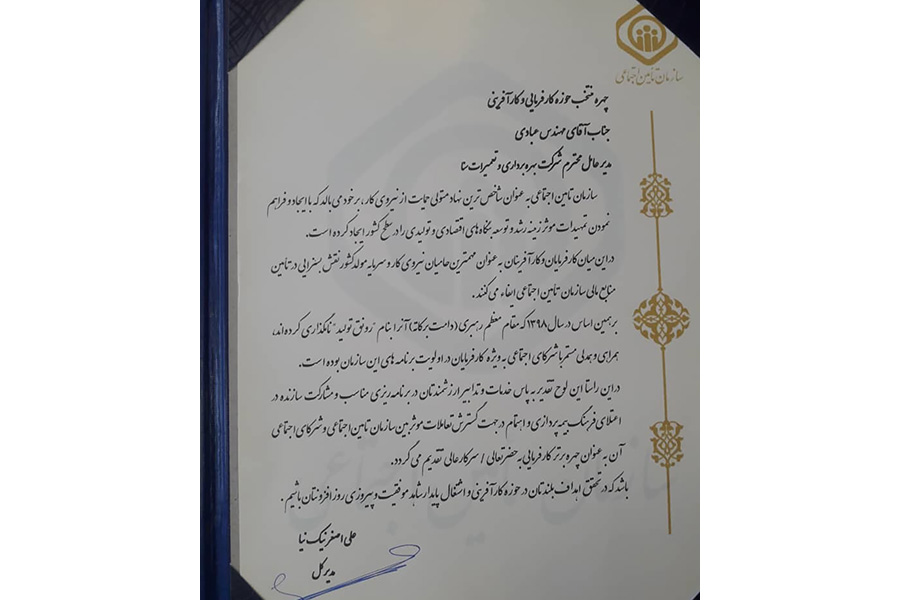 سازمان تأمین اجتماعی
چهره منتخب حوزه کارفرمایی و کارآفرینی
جناب آقای مهندس عبادی
مدیرعامل محترم شرکت بهره برداری و تعمیرات مبنا
سازمان تامین اجتماعی به عنوان شاخص ترین نهاد متولی حمایت از نیروی کار، بر خود می بالد که با ایجاد و فراهم
نمودن تمهیدات موثر زمینه رشد و توسعه بنگاه های اقتصادی و تولیدی را در سطح کشور ایجاد کرده است.
در این میان کارفرمایان و کارآفرینان به عنوان مهمترین حامیان نیروی کار و سرمایه مولد کشور نقش بسزایی در تامین
منابع مالی سازمان تامین اجتماعی ایفاء می کنند.
بر همین اساس در سال ۱۳۹۸ که مقام معظم رهبری (دامت برکاته) آنرا بنام "رونق تولید" نامگذاری کرده اند،
همراهی و همدلی مستمر با شرکای اجتماعی به ویژه کارفرمایان در اولویت برنامه های این سازمان بوده است.
در این راستا این لوح تقدیر به پاس خدمات و تدابیر ارزشمندتان در برنامه ریزی مناسب و مشارکت سازنده در
اعتلای فرهنگ بیمه پردازی و اهتمام در جهت گسترش تعاملات موثر بین سازمان تامین اجتماعی و شرکای اجتماعی
آن به عنوان چهره برتر کارفرمایی به حضرتعالی / سرکار عالی تقدیم می گردد.
باشد که در تحقق اهداف بلندتان در حوزه کارآفرینی و اشتغال پایدار شاهد موفقیت و پیروزی روزافزونتان باشیم.
علی اصغر نیک نیا
مدیر کل